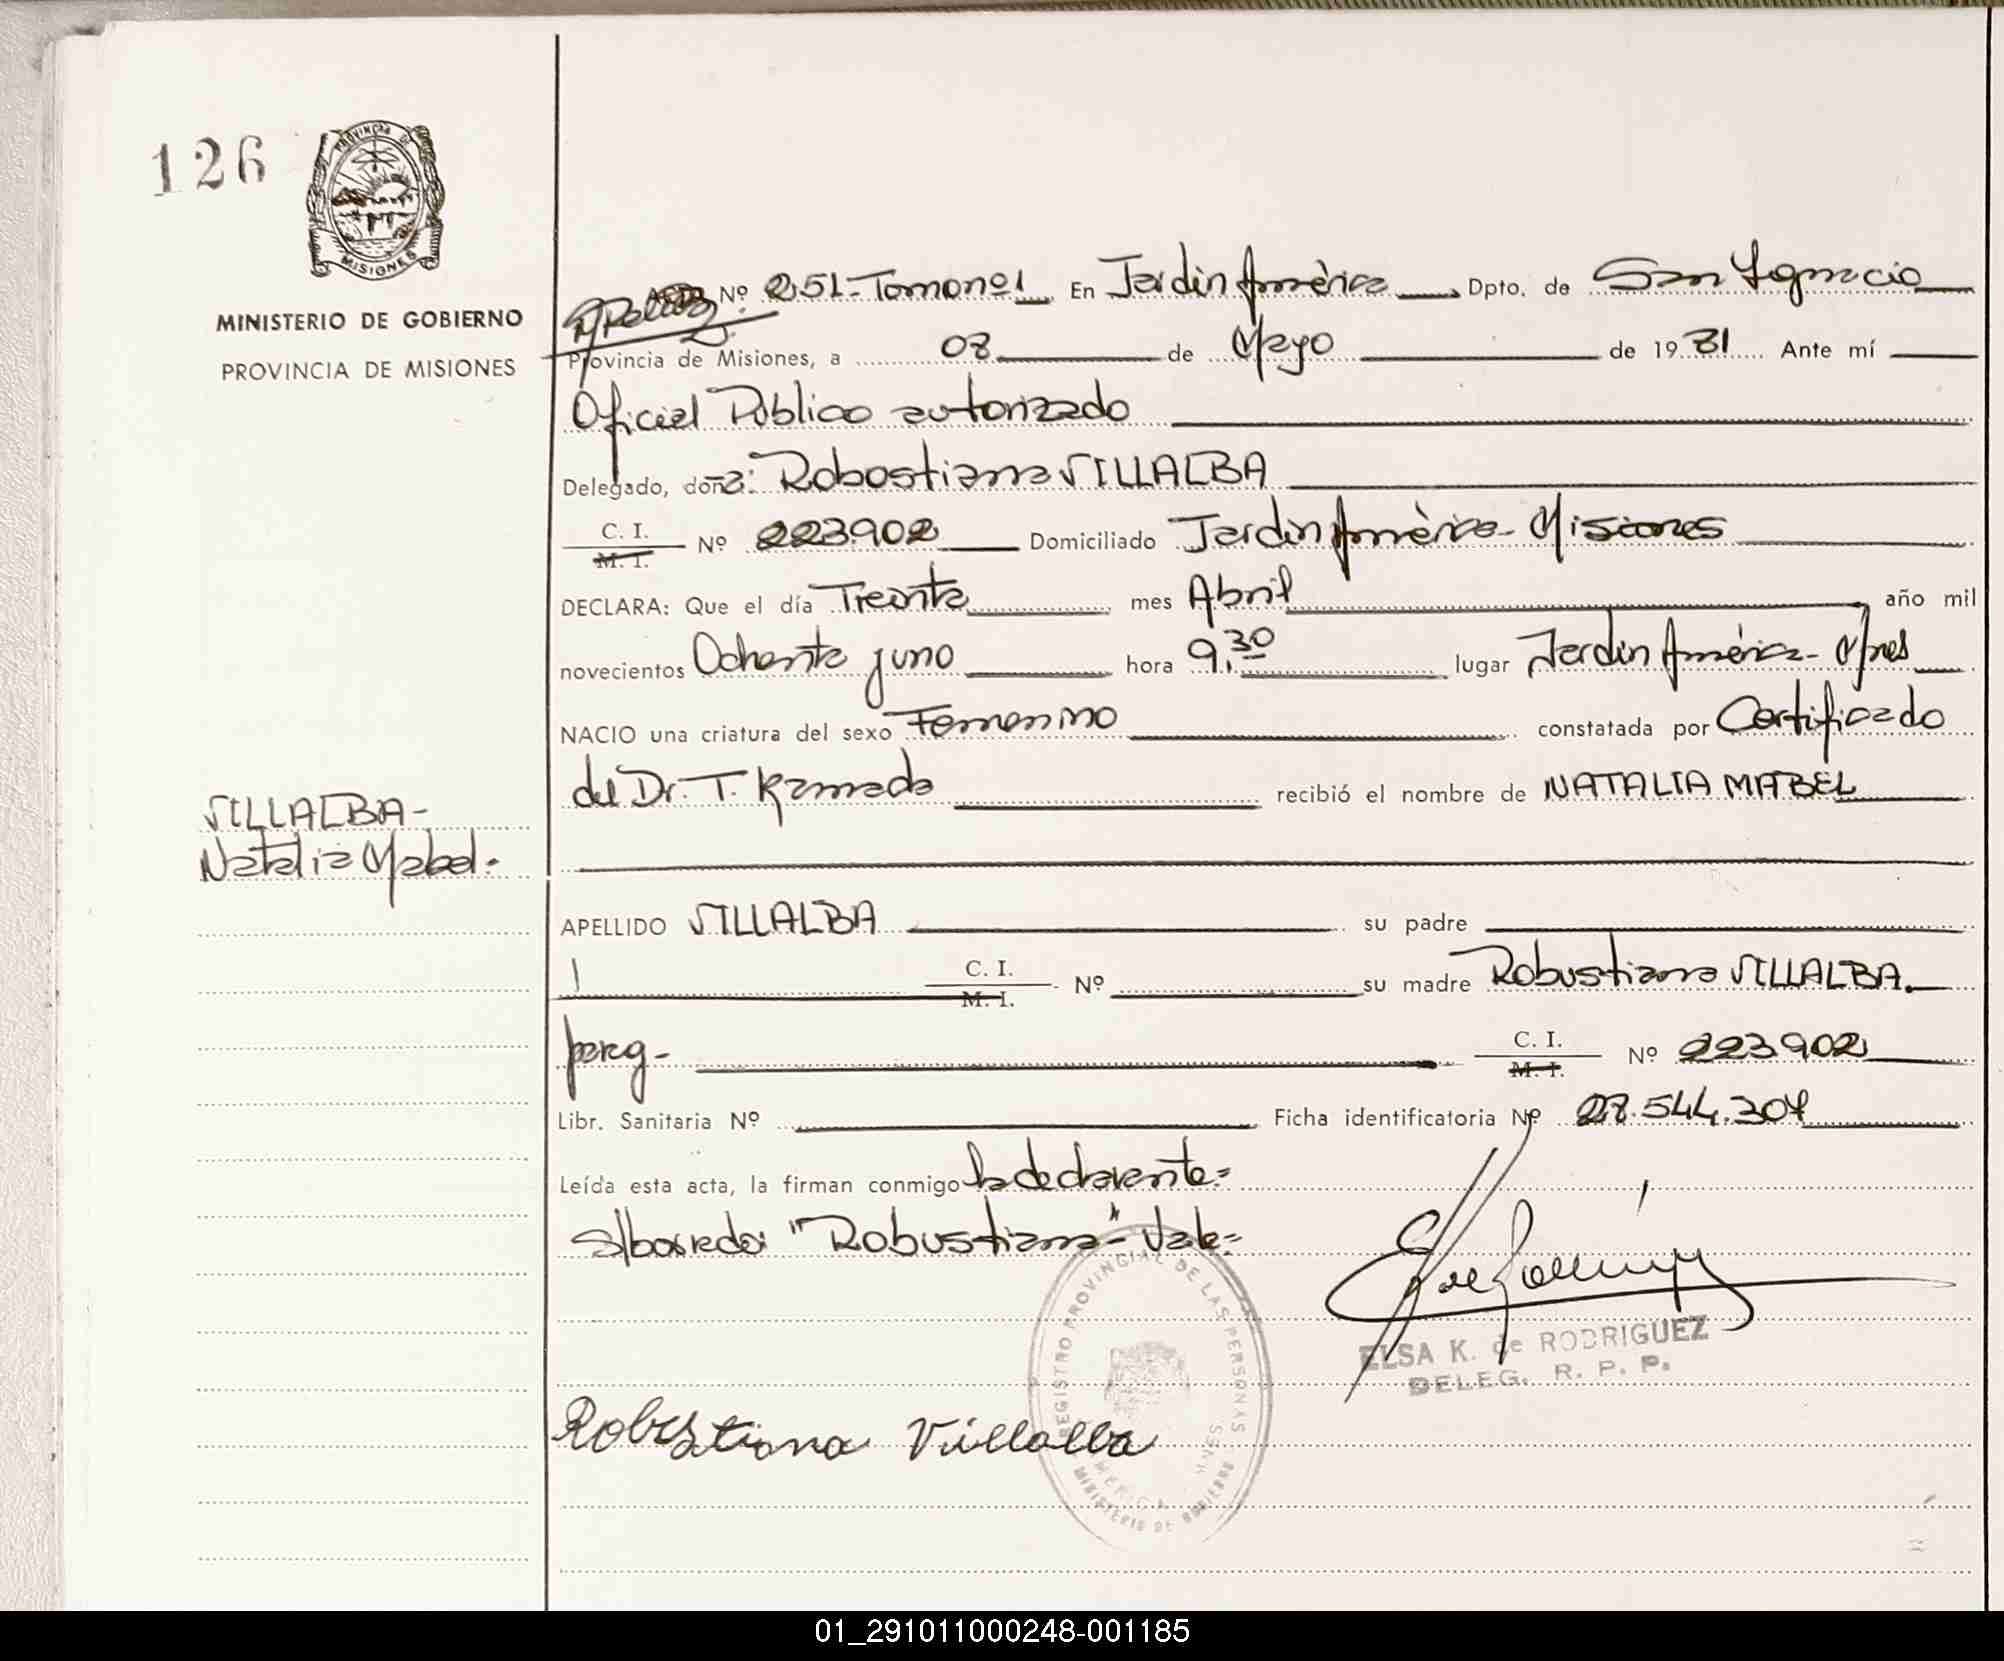 126
PROVINCIA DE
MISIONES
MINISTERIO DE GOBIERNO
PROVINCIA DE MISIONES
Nº 251-Tomo nº1 En Jardin Amèrica Dpto. de San Ignacio
Provincia de Misiones, a 08 de Mayo de 1981 Ante mí
Oficial Público autorizado
Delegado, doña: Robostiana VILLALBA
C. I.
M. I. Nº 223902 Domiciliado Jardin Amèrica - Misiones
DECLARA: Que el día Treinta mes Abril año mil
novecientos Ochenta y uno hora 9,30 lugar Jardin Amèrica - Mnes
NACIO una criatura del sexo Femenino constatada por Certificado
del Dr. T. Kamada recibió el nombre de NATALIA MABEL
VILLALBA-
Natalia Mabel.
APELLIDO VILLALBA su padre
C. I.
M. I. Nº su madre Robustiana VILLALBA.
parg-
C. I.
M. I. Nº 223902
Libr. Sanitaria Nº Ficha identificatoria Nº 28.544.307
Leída esta acta, la firman conmigo la declarante=
s/borrado: "Robustiana" Vale=
ELSA K. de RODRIGUEZ
DELEG. R. P. P.
REGISTRO PROVINCIAL DE LAS PERSONAS
MINISTERIO DE GOBIERNO
AMERICA MNES
Robustiana Villalba
01_291011000248-001185